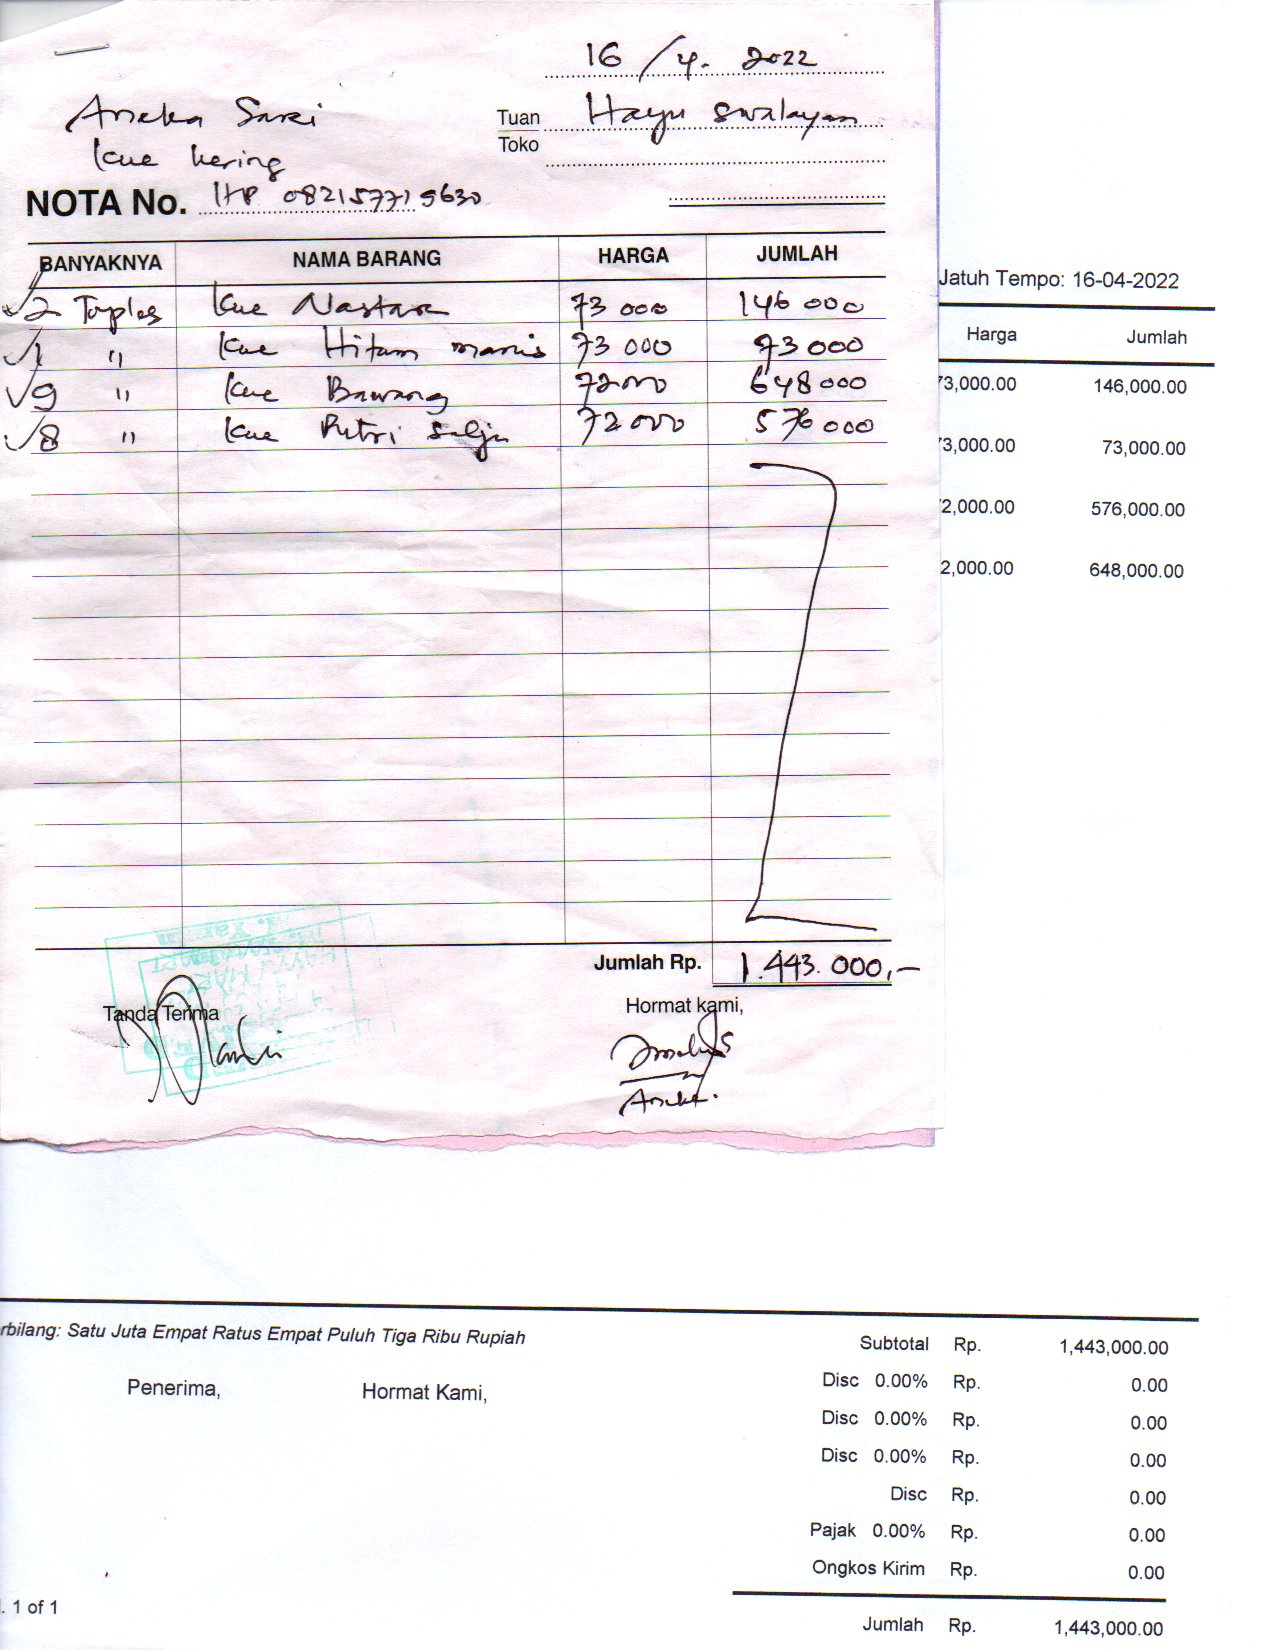 16/4. 2022
Aneka Sari
Tuan Hayu Swalayan
Kue kering
Toko
NOTA No. HP 082157719630
BANYAKNYA NAMA BARANG HARGA JUMLAH
2 Toples Kue Nastar 73 000 146 000
1 " Kue Hitam manis 73 000 73 000
9 " Kue Bawang 72000 648 000
8 " Kue Putri Salju 72000 576 000
Jumlah Rp. 1.443.000,-
Tanda Terima Hormat kami,
Jatuh Tempo: 16-04-2022
Harga Jumlah
3,000.00 146,000.00
3,000.00 73,000.00
2,000.00 576,000.00
2,000.00 648,000.00
rbilang: Satu Juta Empat Ratus Empat Puluh Tiga Ribu Rupiah
Penerima, Hormat Kami,
Subtotal Rp. 1,443,000.00
Disc 0.00% Rp. 0.00
Disc 0.00% Rp. 0.00
Disc 0.00% Rp. 0.00
Disc Rp. 0.00
Pajak 0.00% Rp. 0.00
Ongkos Kirim Rp. 0.00
. 1 of 1
Jumlah Rp. 1,443,000.00